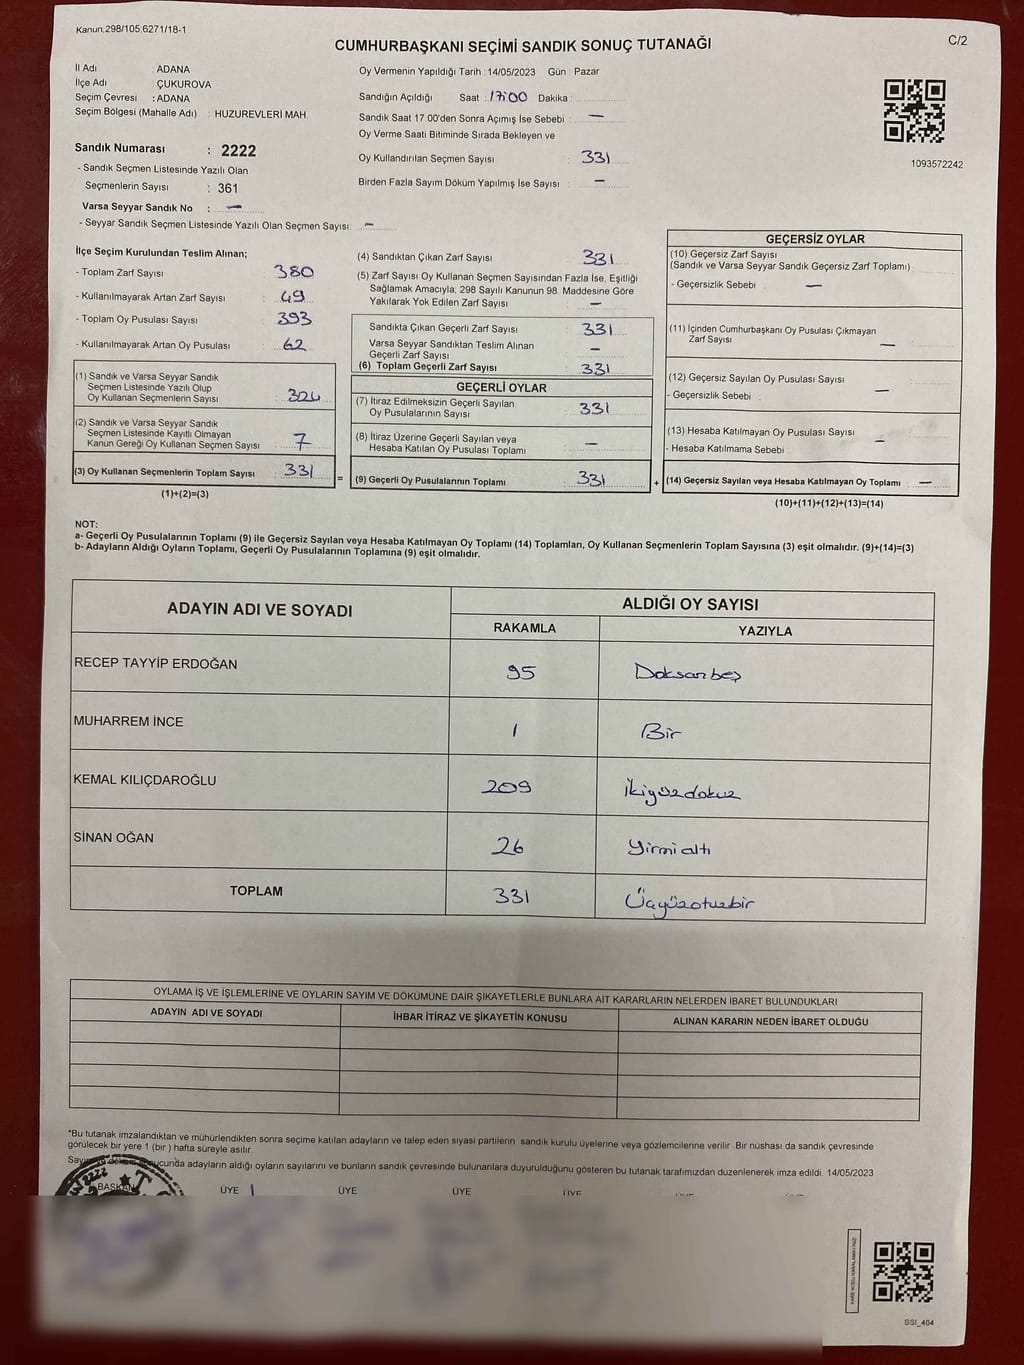 Kanun,298/105,6271/18-1
C/2
CUMHURBAŞKANI SEÇİMİ SANDIK SONUÇ TUTANAĞI
İl Adı : ADANA
İlçe Adı : ÇUKUROVA
Seçim Çevresi : ADANA
Seçim Bölgesi (Mahalle Adı) : HUZUREVLERİ MAH.
Sandık Numarası : 2222
- Sandık Seçmen Listesinde Yazılı Olan
Seçmenlerin Sayısı : 361
Varsa Seyyar Sandık No : —
- Seyyar Sandık Seçmen Listesinde Yazılı Olan Seçmen Sayısı: —
Oy Vermenin Yapıldığı Tarih : 14/05/2023 Gün : Pazar
Sandığın Açıldığı Saat : 17:00 Dakika :
Sandık Saat 17.00'den Sonra Açımış İse Sebebi : —
Oy Verme Saati Bitiminde Sırada Bekleyen ve
Oy Kullandırılan Seçmen Sayısı : 331
Birden Fazla Sayım Döküm Yapılmış İse Sayısı : —
1093572242
İlçe Seçim Kurulundan Teslim Alınan;
- Toplam Zarf Sayısı : 380
- Kullanılmayarak Artan Zarf Sayısı : 49
- Toplam Oy Pusulası Sayısı : 393
- Kullanılmayarak Artan Oy Pusulası : 62
(1) Sandık ve Varsa Seyyar Sandık
Seçmen Listesinde Yazılı Olup
Oy Kullanan Seçmenlerin Sayısı : 324
(2) Sandık ve Varsa Seyyar Sandık
Seçmen Listesinde Kayıtlı Olmayan
Kanun Gereği Oy Kullanan Seçmen Sayısı : 7
(3) Oy Kullanan Seçmenlerin Toplam Sayısı : 331
(1)+(2)=(3)
(4) Sandıktan Çıkan Zarf Sayısı : 331
(5) Zarf Sayısı Oy Kullanan Seçmen Sayısından Fazla İse, Eşitliği
Sağlamak Amacıyla; 298 Sayılı Kanunun 98. Maddesine Göre
Yakılarak Yok Edilen Zarf Sayısı : —
Sandıkta Çıkan Geçerli Zarf Sayısı : 331
Varsa Seyyar Sandıktan Teslim Alınan
Geçerli Zarf Sayısı : —
(6) Toplam Geçerli Zarf Sayısı : 331
GEÇERLİ OYLAR
(7) İtiraz Edilmeksizin Geçerli Sayılan
Oy Pusulalarının Sayısı : 331
(8) İtiraz Üzerine Geçerli Sayılan veya
Hesaba Katılan Oy Pusulası Toplamı : —
= (9) Geçerli Oy Pusulalarının Toplamı : 331 +
GEÇERSİZ OYLAR
(10) Geçersiz Zarf Sayısı
(Sandık ve Varsa Seyyar Sandık Geçersiz Zarf Toplamı) :
- Geçersizlik Sebebi : —
(11) İçinden Cumhurbaşkanı Oy Pusulası Çıkmayan
Zarf Sayısı : —
(12) Geçersiz Sayılan Oy Pusulası Sayısı : —
- Geçersizlik Sebebi :
(13) Hesaba Katılmayan Oy Pusulası Sayısı : —
- Hesaba Katılmama Sebebi :
(14) Geçersiz Sayılan veya Hesaba Katılmayan Oy Toplamı : —
(10)+(11)+(12)+(13)=(14)
NOT:
a- Geçerli Oy Pusulalarının Toplamı (9) ile Geçersiz Sayılan veya Hesaba Katılmayan Oy Toplamı (14) Toplamları, Oy Kullanan Seçmenlerin Toplam Sayısına (3) eşit olmalıdır. (9)+(14)=(3)
b- Adayların Aldığı Oyların Toplamı, Geçerli Oy Pusulalarının Toplamına (9) eşit olmalıdır.
ADAYIN ADI VE SOYADI ALDIĞI OY SAYISI
RAKAMLA YAZIYLA
RECEP TAYYİP ERDOĞAN 95 Doksanbeş
MUHARREM İNCE 1 Bir
KEMAL KILIÇDAROĞLU 209 İkiyüzdokuz
SİNAN OĞAN 26 Yirmialtı
TOPLAM 331 Üçyüzotuzbir
OYLAMA İŞ VE İŞLEMLERİNE VE OYLARIN SAYIM VE DÖKÜMÜNE DAİR ŞİKAYETLERLE BUNLARA AİT KARARLARIN NELERDEN İBARET BULUNDUKLARI
ADAYIN ADI VE SOYADI İHBAR İTİRAZ VE ŞİKAYETİN KONUSU ALINAN KARARIN NEDEN İBARET OLDUĞU
*Bu tutanak imzalandıktan ve mühürlendikten sonra seçime katılan adayların ve talep eden siyasi partilerin sandık kurulu üyelerine veya gözlemcilerine verilir .Bir nüshası da sandık çevresinde
görülecek bir yere 1 (bir ) hafta süreyle asılır.
adayların aldığı oyların sayılarını ve bunların sandık çevresinde bulunanlara duyurulduğunu gösteren bu tutanak tarafımızdan düzenlenerek imza edildi. 14/05/2023
BAŞKAN ÜYE ÜYE ÜYE ÜYE
SSI_404